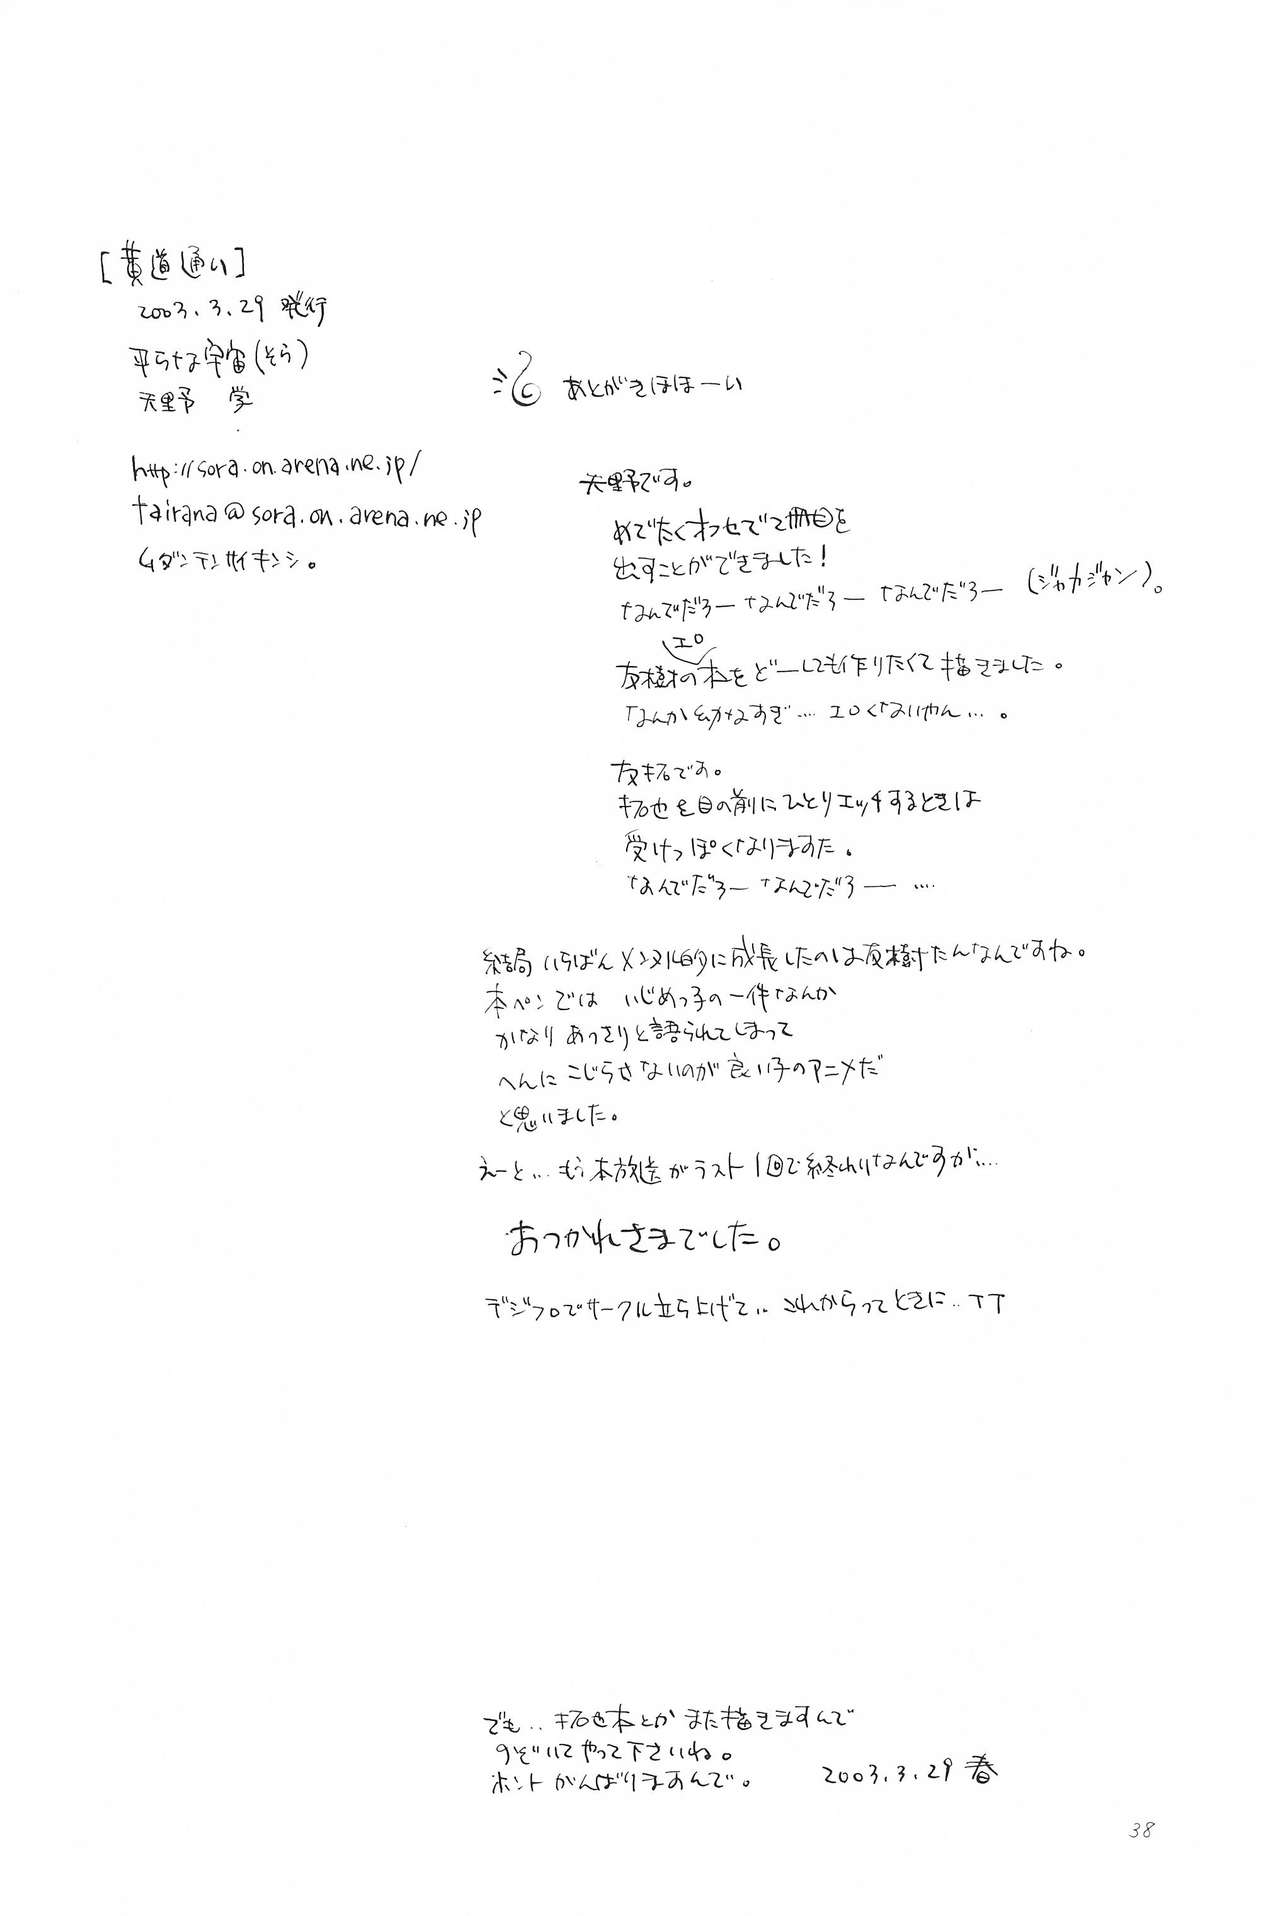 [黄道通い]
2003.3.29 発行
平らな宇宙(そら)
天野 学
http://sora.on.arena.ne.jp/
tairana@sora.on.arena.ne.jp
ムダンテンサイキンシ。
あとがきほほーい
天野です。
めでたくオフセで2冊目を
出すことができました!
なんでだろー なんでだろー なんでだろー (ジャカジャン)。
友樹のエロ本をどーしても作りたくて描きました。
なんか幼なすぎ…. エロくないやん…。
友拓です。
拓也を目の前にひとりエッチするときは
受けっぽくなりますた。
なんでだろー なんでだろー ….
結局 いちばんメンタル的に成長したのは友樹たんなんですね。
本ペンでは いじめっ子の一件なんか
かなりあっさりと語られてしまって
へんにこじらさないのが良い子のアニメだ
と思いました。
えーと… もう本放送がラスト1回で終わりなんですが….
おつかれさまでした。
デジフロでサークル立ち上げて.. これからってときに.. TT
でも.. 拓也本とかまた描きますんで
のぞいてやって下さいね。
ホントがんばりますんで。
2003.3.29 春
38